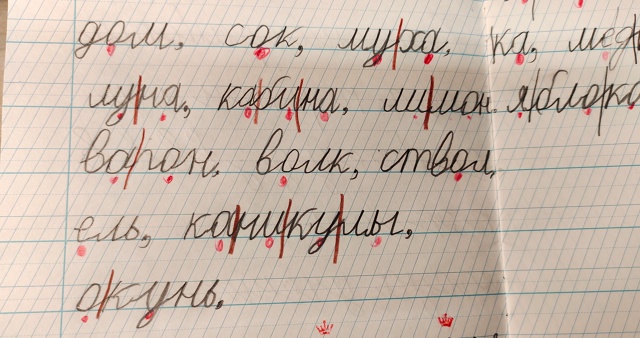 дом, сок, муха, ка, мед
луна, кабина, лимон. яблока
ворон, волк, ствол,
ель, каникулы,
окунь.